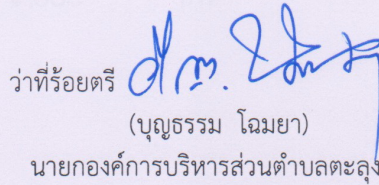 ว่าที่ร้อยตรี
(บุญธรรม โฉมยา)
นายกองค์การบริหารส่วนตำบลตะลุง